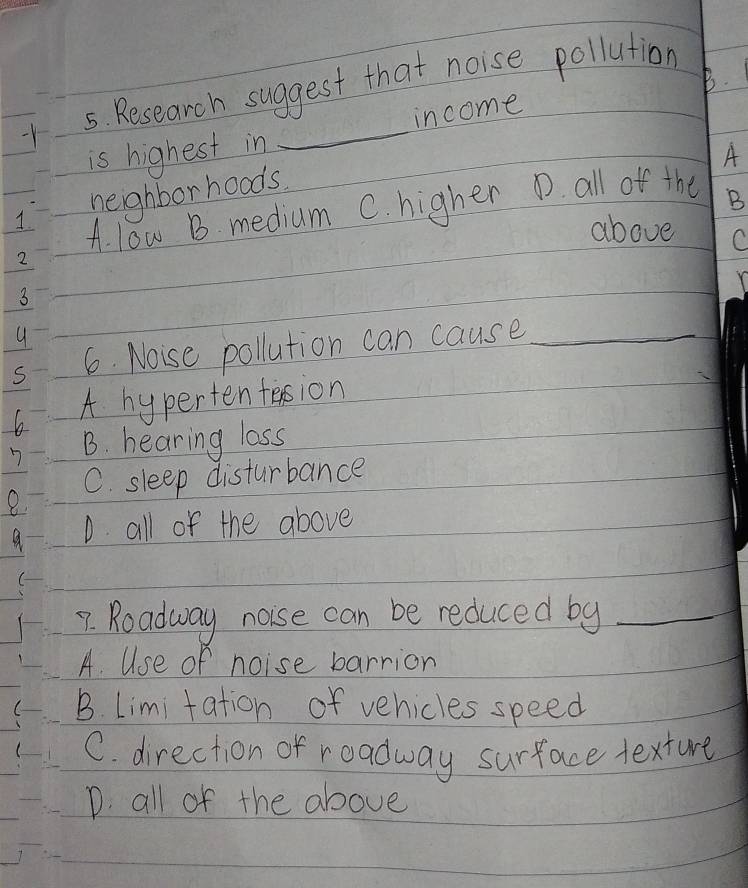 5. Research suggest that noise pollution
is highest in ______ income
neighborhoods.
A. low B. medium C. higher D. all of the
above
6. Noise pollution can cause ______
A hypertention
B. hearing loss
C. sleep disturbance
D. all of the above
7. Roadway noise can be reduced by ______
A. Use of noise barrion
B. Limitation of vehicles speed
C. direction of roadway surface texture
D. all of the above
1
2
3
4
5
6
7
8
9
3.
A
B
C